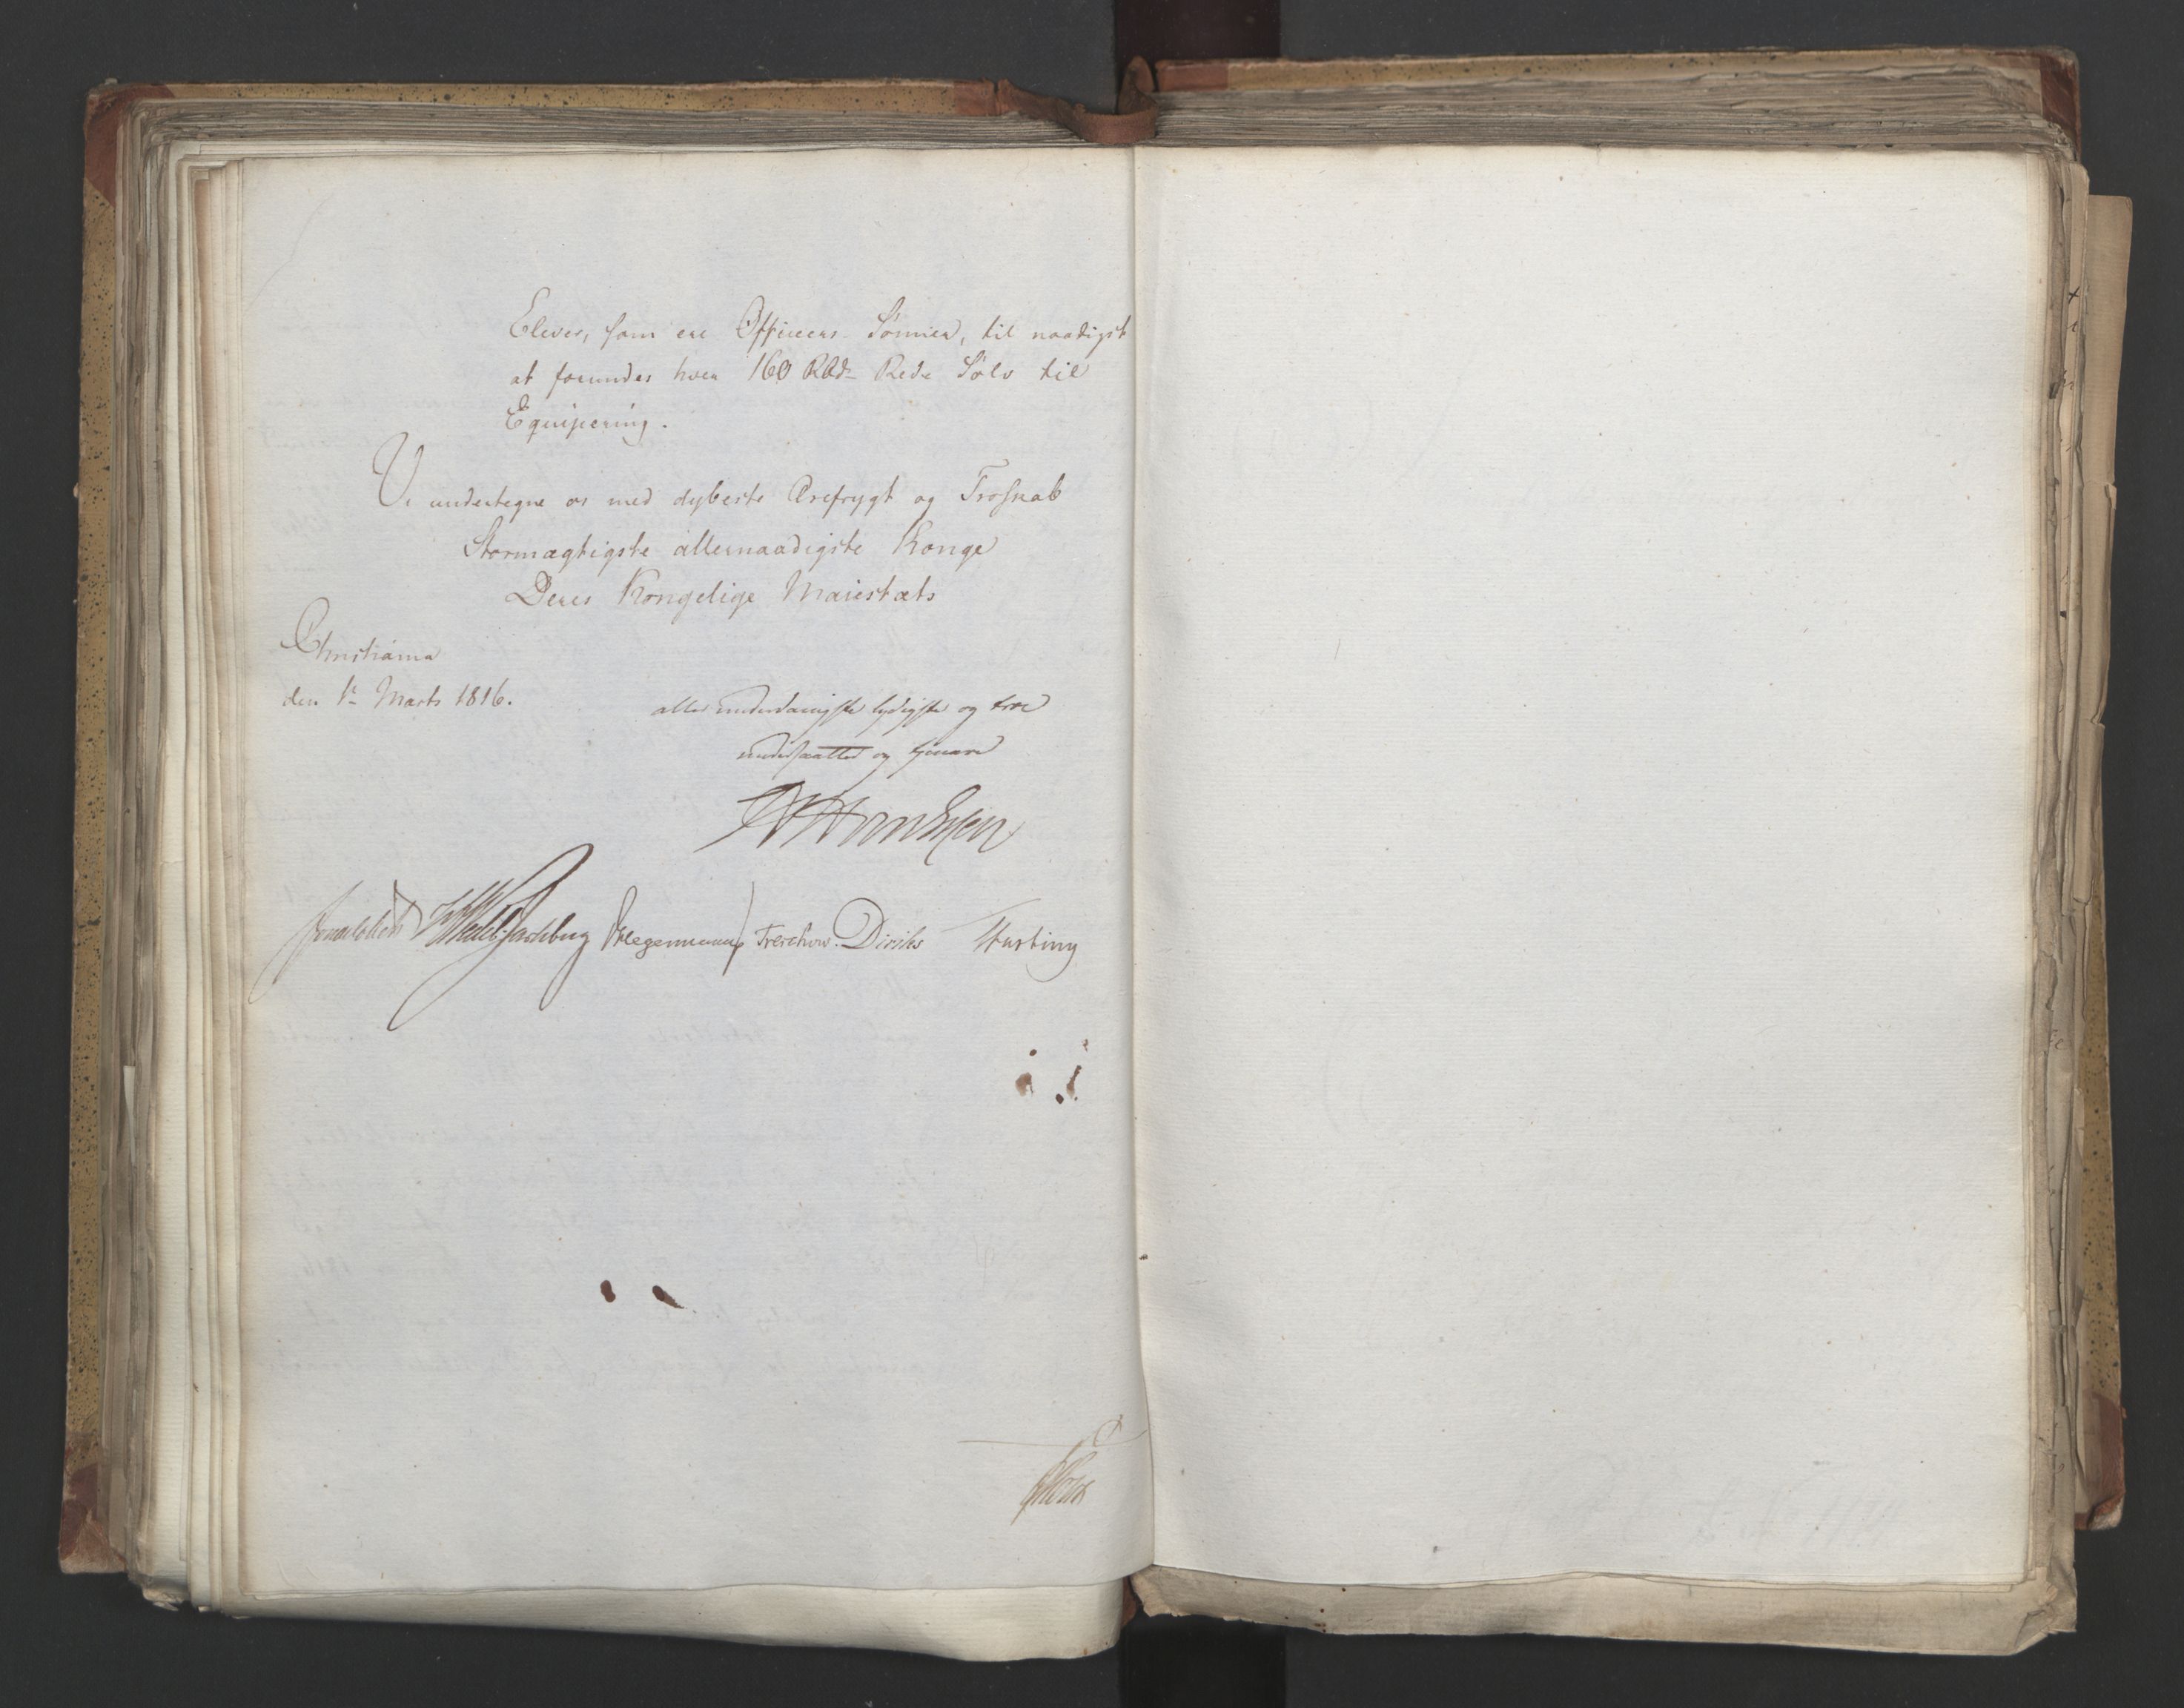 Elever, som ere Officeers Sønner, til naadigst
at forundes hver 160 Rbd Rede Sølv til
Equipering.
Vi undertegne os med dybeste Ærefrygt og Troskab
Stormægtigste allernaadigste Konge
Deres Kongelige Maiestæts
Christiania
den 1ste Marts 1816.
allerunderdanigste lydigste og troe
undersaatter og tjenere
Sommerhielm Wedel Jarlsberg Hegermann Treschow. Diriks Hasting